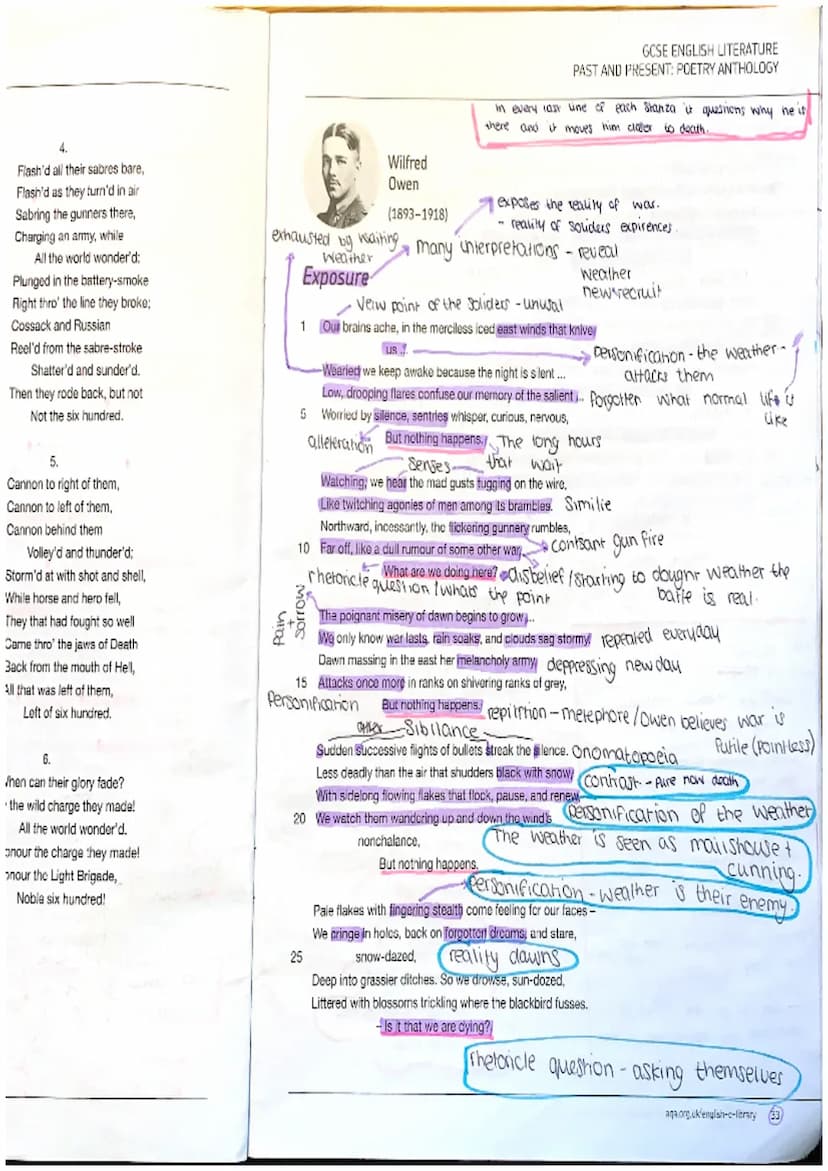 4.
Flash'd all their sabres bare,
Flash'd as they turn'd in air
Sabring the gunners there,
Charging an army, while
All the world wonder'd:
Plunged in the battery-smoke
Right thro' the line they broke;
Cossack and Russian
Reel'd from the sabre-stroke
Shatter'd and sunder'd.
Then they rode back, but not
Not the six hundred.
5.
Cannon to right of them,
Cannon to left of them,
Cannon behind them
Volley'd and thunder'd;
Storm'd at with shot and shell,
While horse and hero fell,
They that had fought so well
Came thro' the jaws of Death
Back from the mouth of Hell,
All that was left of them,
Left of six hundred.
6.
When can their glory fade?
the wild charge they made!
All the world wonder'd.
onour the charge they made!
onour the Light Brigade,
Noble six hundred!
GCSE ENGLISH LITERATURE
PAST AND PRESENT: POETRY ANTHOLOGY
in every last line of each stanza it questions why he is
there and it moves him closer to death.
Wilfred
Owen
(1893–1918)
exposes the reality of war.
- reality of soliders expirences
exhausted by waiting
weather
many interpretations - reveal
weather
new recruit
Exposure
veiw point of the soliders - unusal
1 Our brains ache, in the merciless iced east winds that knive
us ...
personification - the weather -
attacks them
Wearied we keep awake because the night is silent ...
Low, drooping flares confuse our memory of the salient ...
forgotten what normal life is
like
5 Worried by silence, sentries whisper, curious, nervous,
alleteration
But nothing happens.
The long hours
that wait
senses
Watching, we hear the mad gusts tugging on the wire,
Like twitching agonies of men among its brambles.
Similie
Northward, incessantly, the flickering gunnery rumbles,
10 Far off, like a dull rumour of some other war.
contsant gun fire
What are we doing here?
rhetoricle
question / whats the point
disbelief / starting to dougnt weather the
batle is real.
pain + sorrow
The poignant misery of dawn begins to grow ...
We only know war lasts, rain soaks, and clouds sag stormy.
repeated everyday
Dawn massing in the east her melancholy army
deppressing new day
15 Attacks once more in ranks on shivering ranks of grey,
Personification
But nothing happens.
repitition - metephore / owen believes war is
futile (pointless)
Sibilance
Sudden successive flights of bullets streak the silence.
Onomatopoeia
Less deadly than the air that shudders black with snow,
contrast - pure now death
With sidelong flowing flakes that flock, pause, and renew,
20 We watch them wandering up and down the wind's
personification of the weather
nonchalance,
The weather is seen as mailshouse +
cunning.
But nothing happens.
personification - weather is their enemy.
Pale flakes with fingering stealth come feeling for our faces –
We cringe in holes, back on forgotten dreams, and stare,
25 snow-dazed,
reality dawns
Deep into grassier ditches. So we drowse, sun-dozed,
Littered with blossoms trickling where the blackbird fusses.
– Is it that we are dying?
rhetoricle question - asking themselves
aqa.org.uk/english-e-library 33